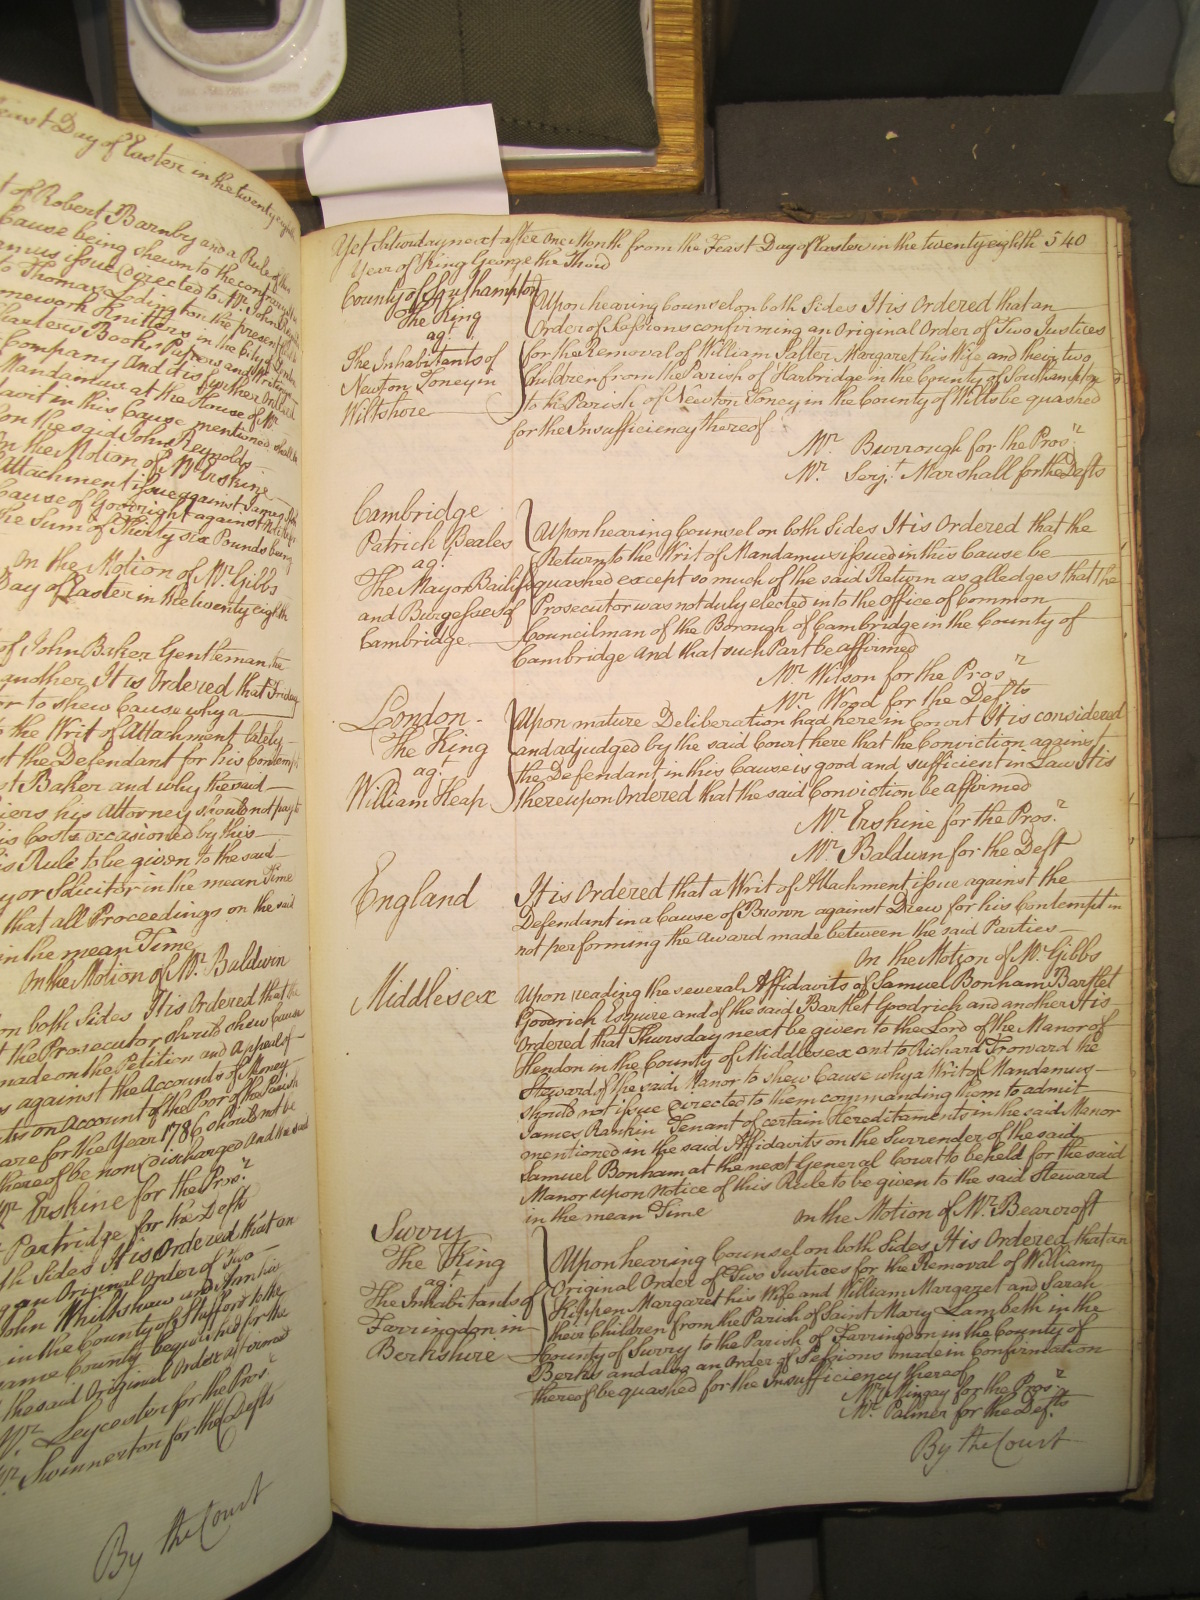 east Day of Easter in the twenty eighth
t of Robert Barnby and a Rule of
Cause being shewn to the contrary
amus issue Directed to Mr. John
to Thomas Lodington the present
mework Knitters in the City of London
Charters Books Papers and Writings
Company And it is further Ordered
Mandamus at the House of Mr.
davit in this Cause mentioned shall be
on the said John Reynolds
On the Motion of Mr. Erskine
Attachment issue against James
Cause of Goodright against
the Sum of Thirty six Pounds being
On the Motion of Mr. Gibbs
Day of Easter in the twenty eighth
of John Baker Gentleman the
another It is Ordered that Friday
er to shew Cause why a
to the Writ of Attachment lately
st the Defendant for his Contempt
st Baker and why the said
iers his Attorney should not pay to
is Costs occasioned by this
is Rule to be given to the said
y or Solicitor in the mean Time
that all Proceedings on the said
in the mean Time
On the Motion of Mr. Baldwin
on both Sides It is Ordered that the
t the Prosecutor should shew Cause
made on the Petition and Appeal of
s against the Accounts of Money
on Account of the Poor of the Parish
are for the Year 1786 should not be
thereof be now Discharged And the said
Mr. Erskine for the Prosr.
Partridge for the Deft
th Sides It is Ordered that an
g an Original Order of Two
John Whilshaw and Ann his
in the County of Stafford to the
same County be quashed for the
the said Original Order affirmed
Mr. Leycester for the Prosr.
Mr. Swinnerton for the Defts
By the Court
Yet Saturday next after One Month from the Feast Day of Easter in the twenty eighth 540
Year of King George the Third
County of Southampton
The King
agt.
The Inhabitants of
Newton Toney in
Wiltshire
Upon hearing Counsel on both Sides It is Ordered that an
Order of Sessions confirming an Original Order of Two Justices
for the Removal of William Salter Margaret his Wife and their two
Children from the Parish of Harbridge in the County of Southampton
to the Parish of Newton Toney in the County of Wilts be quashed
for the Insufficiency thereof
Mr. Burrough for the Prosr.
Mr. Serjt. Marshall for the Defts
Cambridge
Patrick Beales
agt.
The Mayor Bailiffs
and Burgesses of
Cambridge
Upon hearing Counsel on both Sides It is Ordered that the
Return to the Writ of Mandamus issued in this Cause be
quashed except so much of the said Return as alledges that the
Prosecutor was not duly elected into the Office of Common
Councilman of the Borough of Cambridge in the County of
Cambridge and that such Part be affirmed
Mr. Wilson for the Prosr
Mr. Wood for the Defts
London
The King
agt.
William Heap
Upon mature Deliberation had here in Court It is considered
and adjudged by the said Court here that the Conviction against
the Defendant in this Cause is good and sufficient in Law It is
thereupon Ordered that the said Conviction be affirmed
Mr. Erskine for the Prosr.
Mr. Baldwin for the Deft
England
It is Ordered that a Writ of Attachment issue against the
Defendant in a Cause of Brown against Drew for his Contempt in
not performing the award made between the said Parties
On the Motion of Mr. Gibbs
Middlesex
Upon reading the several Affidavits of Samuel Bonham Bartlet
Goodrich Esquire and of the said Bartlet Goodrich and another It is
Ordered that Thursday next be given to the Lord of the Manor of
Hendon in the County of Middlesex and to Richard Troward the
Steward of the said Manor to shew Cause why a Writ of Mandamus
should not issue Directed to them commanding them to admit
James Rankin Tenant of certain Hereditaments in the said Manor
mentioned in the said Affidavits on the Surrender of the said
Samuel Bonham at the next General Court to be held for the said
Manor upon notice of this Rule to be given to the said Steward
in the mean Time
On the Motion of Mr. Bearcroft
Surry
The King
agt.
The Inhabitants of
Farringdon in
Berkshire
Upon hearing Counsel on both Sides It is Ordered that an
Original Order of Two Justices for the Removal of William
Stephen Margaret his Wife and William Margaret and Sarah
their Children from the Parish of Saint Mary Lambeth in the
County of Surry to the Parish of Farringdon in the County of
Berks and also an Order of Sessions made in Confirmation
thereof be quashed for the Insufficiency thereof
Mr. Mingay for the Prosr.
Mr. Palmer for the Defts.
By the Court